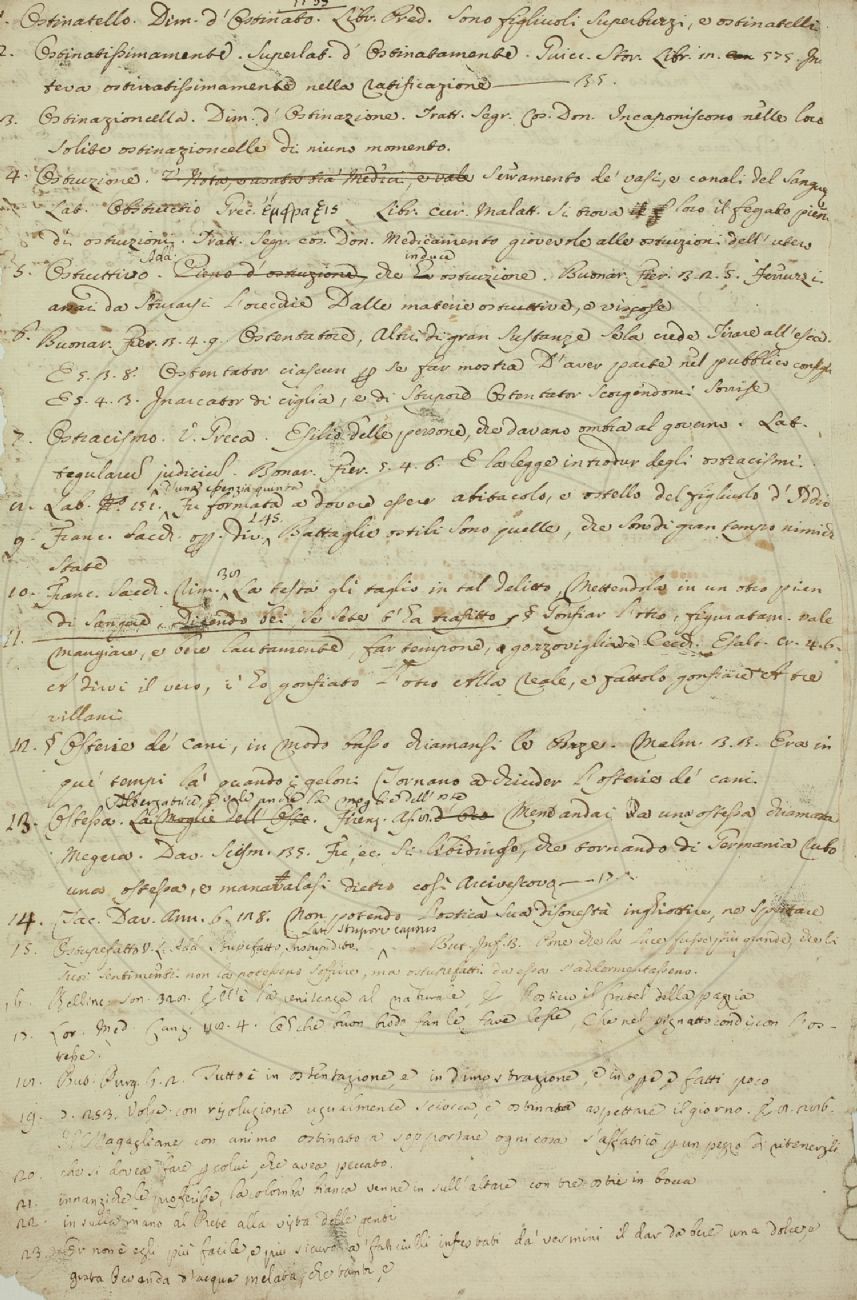 1. Ostinatello. Dim. d'Ostinato. Libr. Pred. Sono figliuoli superbuzzi, e ostinatelli
2. Ostinatissimamente. Superlat. d'Ostinatamente. Guicc. Stor. Libr. 575
teva ostinatissimamente nella ratificazione
3. Ostinazioncella. Dim. d'Ostinazione. Tratt. Segr. Cos. Don. Incaponiscono nelle loro
solite ostinazioncelle di niuno momento.
4. Ostruzione. Serramento de' vasi, e canali del sangue
Lat. Obstructio Grec. Libr. cur. Malatt. Si trova loro il fegato pien
di ostruzioni. Tratt. Segr. cos. Don. Medicamento giovevole alle ostruzioni dell'utero
5. Ostruttivo. Add. che induce ostruzione. Buonar. Fier.
da sturarsi l'orecchie Dalle materie ostruttive, e viscose
6. Buonar. Fier. 3. 4. 9. Ostentatore, Altri di gran sustanze se la crede Tirare all'esca.
E 5. 3. 8. Ostentator ciascun se far mostra D'aver parte nel pubblico
E 5. 4. 3. Inarcator di ciglia, e di stupore Ostentator scorgendomi sorrise
7. Ostracismo. V. Greca. Esilio delle persone, che davano ombra al governo. Lat.
Bonar. Fier. 5. 4. 6. E la legge introdur degli ostracismi.
Fu formata a dovere essere abitacolo, e ostello del figliuolo d'Iddio
9. Franc. Sacch. op. div. 145. Battaglie ostili sono quelle, che sono di gran tempo nimichi
state
10. Franc. Sacch. rim. La testa gli taglio in tal delitto, Mettendola in un otro pien
di sangue dicendo bei, se sete t'ha trafitto
11. § Gonfiar l'otro, figuratam. vale
mangiare, e bere lautamente, far tempone, gozzovigliare Cecch. Esalt. cr. 4. 6.
A dirvi il vero, i' ho gonfiato L'otro alla reale, e fattolo gonfiare A tre
villani
12. § Osterie de' cani, in modo basso chiamansi le Pozze. Malm. Era in
que' tempi là quando i geloni Tornano a chiuder l'osterie de' cani.
13. Ostessa. Albergatrice, e vale anche la moglie dell'oste Firenz. Asin. Me n'andai da una ostessa chiamata
Megera. Dav. Scism. 135. Fu ec. sì libidinoso, che tornando di Germania rubò
una ostessa, e menavalasi dietro così Arcivescovo
14. Tac. Dav. Ann. 6. 128. Non potendo l'ostica sua disonestà inghiottire, ne sputare
15. Ostupefatto V. L. Add. Stupefatto, Instupidito. Lat. stupore captus But. Inf. 3. Pone che la luce fusse più grande, che li
suoi sentimenti non la potesseno soffrire, ma ostupefatti da essa s'addormentasseno.
16. Bellinc. son. è la penitenza al naturale, ostico il fratel della pazzia
17. Lor. Med. canz. 4. che buon brodo fan le fave lesse, Che nel pignatto condiscon l'os-
tesse.
18. Bus. Purg. Tutto è in ostentazione, e in dimostrazione, e in opere, e fatti poco
19. 253. Volle con risoluzione ugualmente sciocca, e ostinata aspettare il giorno.
Il Magaglianes con animo ostinato a sopportare ogni cosa s'affaticò per un pezzo di ritenergli
20. che si dovea fare per colui, che avea peccato.
21. innanzi che le proferisse, la colomba bianca venne in sull'altare con tre ostie in bocca
22. in sulla mano al Prete alla vista delle genti
23. Or non è egli più facile, e più sicuro a' fanciulli infestati da' vermini il dar da bere una dolce, e
grata bevanda d'acqua melata, che tanti, e